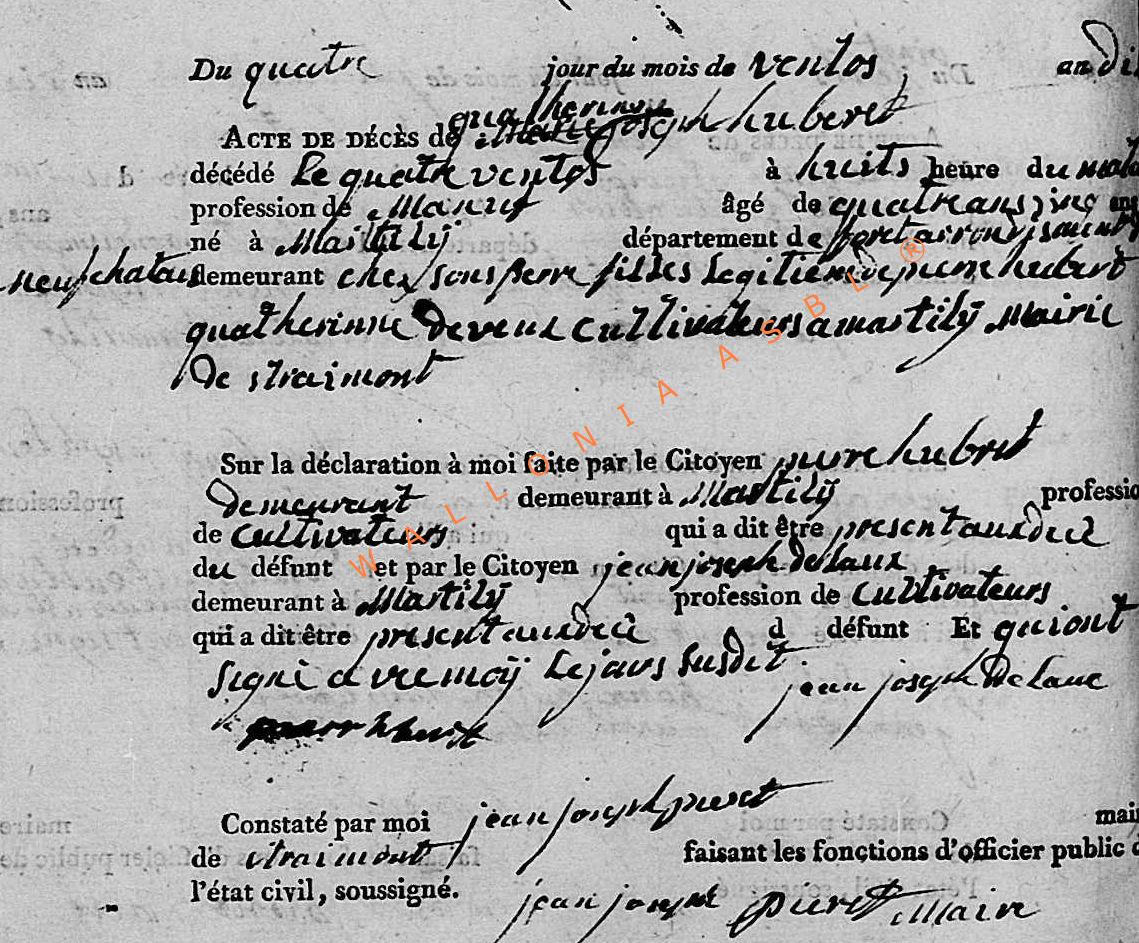 Du quatre jour du mois de ventos, an di
quatherinne
ACTE DE DÉCÈS de joseph huberet
décédé Le quatre ventos à huits heure du mat
profession de âgé de quatreans
né à Mastilÿ département de foret arrondisement
neufchataus demeurant chez sons perre fil des Legitiem de pierre hubert
quatherinne deveux Cultivateurs a mastilÿ Mairie
De straimont
Sur la déclaration à moi faite par le Citoyen pierre hubret
demeurant demeurant à Mastilÿ professio
de Cultivateurs qui a dit être present audecè
du défunt et par le Citoyen jean joseph delaux
demeurant à Mastilÿ profession de Cultivateurs
qui a dit être present audecè d défunt Et qui ont
signé a vec moÿ Le jours Susdit.
jean joseph Delaux
Constaté par moi jean joseph pieret mair
de straimont faisant les fonctions d'officier public d
l'état civil, soussigné.
jean joseph pieret Maire
WALLONIA ASBL ®